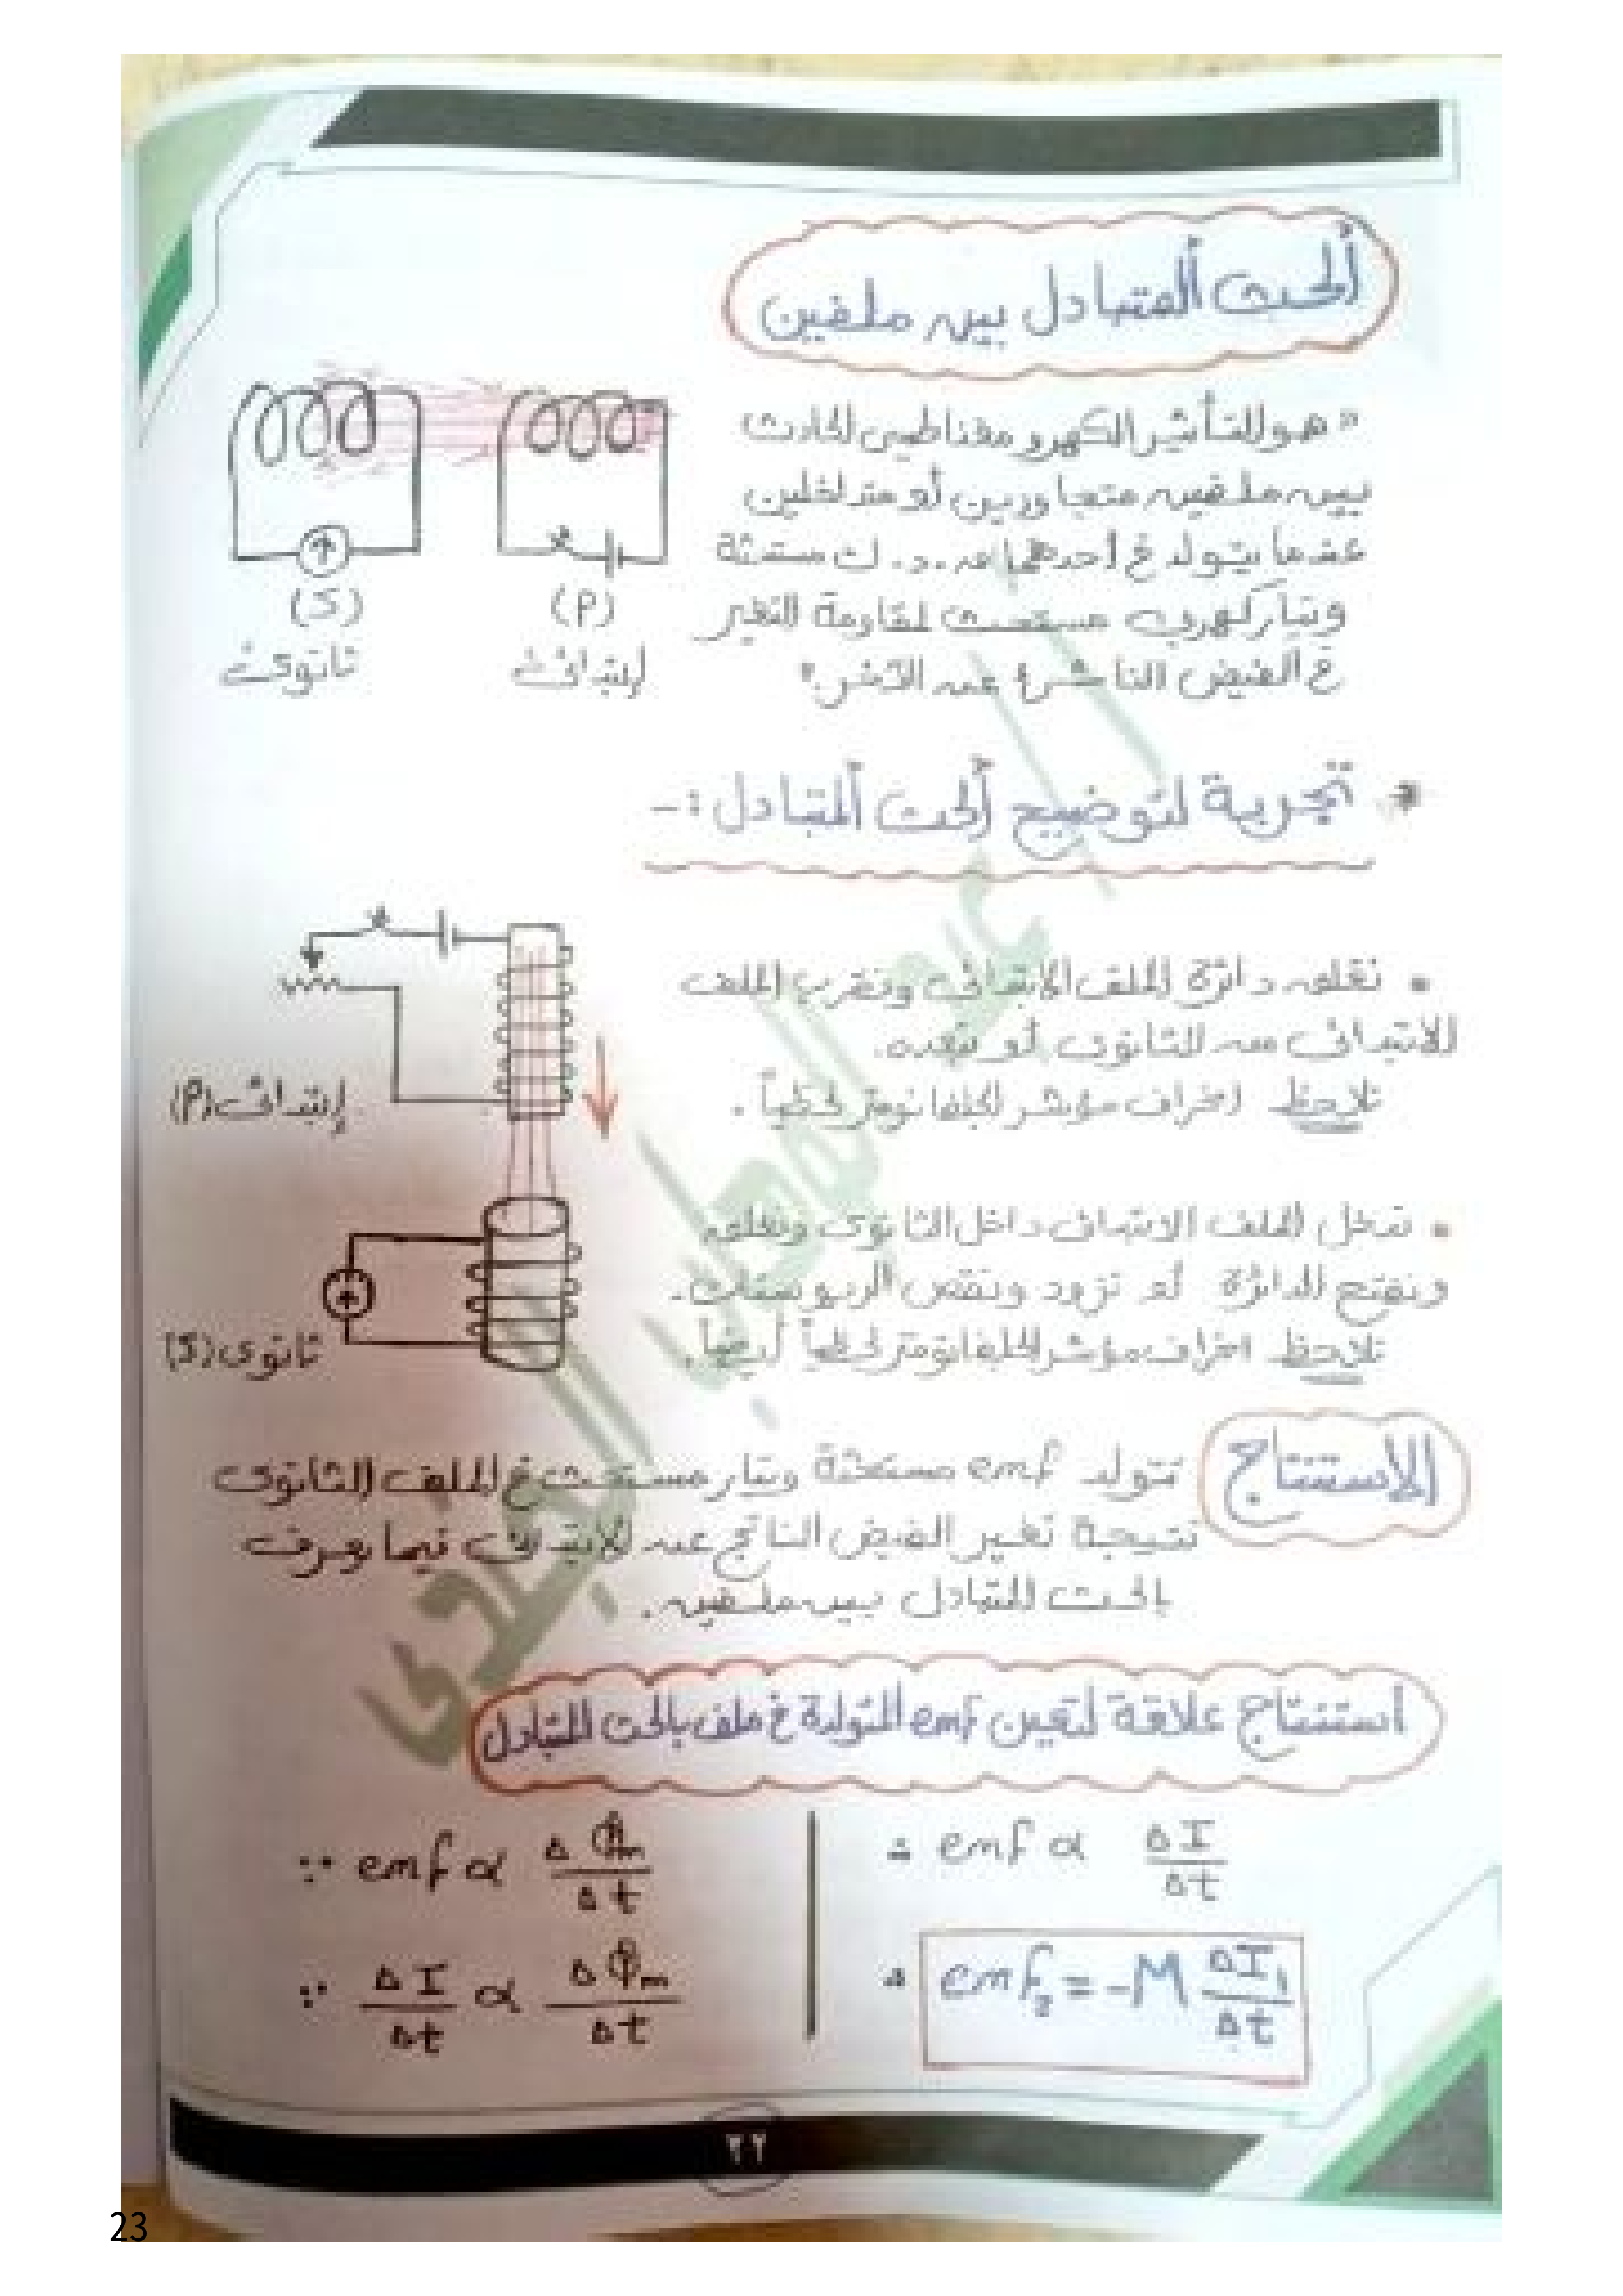 الحث المتبادل بين ملفين
" هو التأثير الكهرومغناطيسى الحادث
بين ملفين متجاورين أو متداخلين
عندما يتولد فى أحدهما ق.د.ك مستحثة
وتيار كهربى مستحث لمقاومة التغير
فى الفيض الناشئ عن الآخر "
(S)
(P)
ثانوى
إبتدائى
* تجربة لتوضيح الحث المتبادل :-
• نغلق دائرة الملف الابتدائى ونقرب الملف
الابتدائى من الثانوى أو نبعده.
نلاحظ انحراف مؤشر الجلفانومتر لحظياً .
إبتدائى (P)
• ندخل الملف الابتدائى داخل الثانوى ونغلق
ونفتح الدائرة أو نزود وننقص الريوستات.
نلاحظ انحراف مؤشر الجلفانومتر لحظياً أيضاً.
ثانوى (S)
الاستنتاج
تتولد emf مستحثة وتيار مستحث فى الملف الثانوى
نتيجة تغير الفيض الناتج عن الابتدائى فيما يعرف
بالحث المتبادل بين ملفين .
استنتاج علاقة لتعين emf المتولدة فى ملف بالحث المتبادل
∵ emf α Δ Φm / Δt
∵ Δ I / Δt α Δ Φm / Δt
∴ emf α Δ I / Δt
∴ emf2 = -M Δ I1 / Δt
٢٢
23